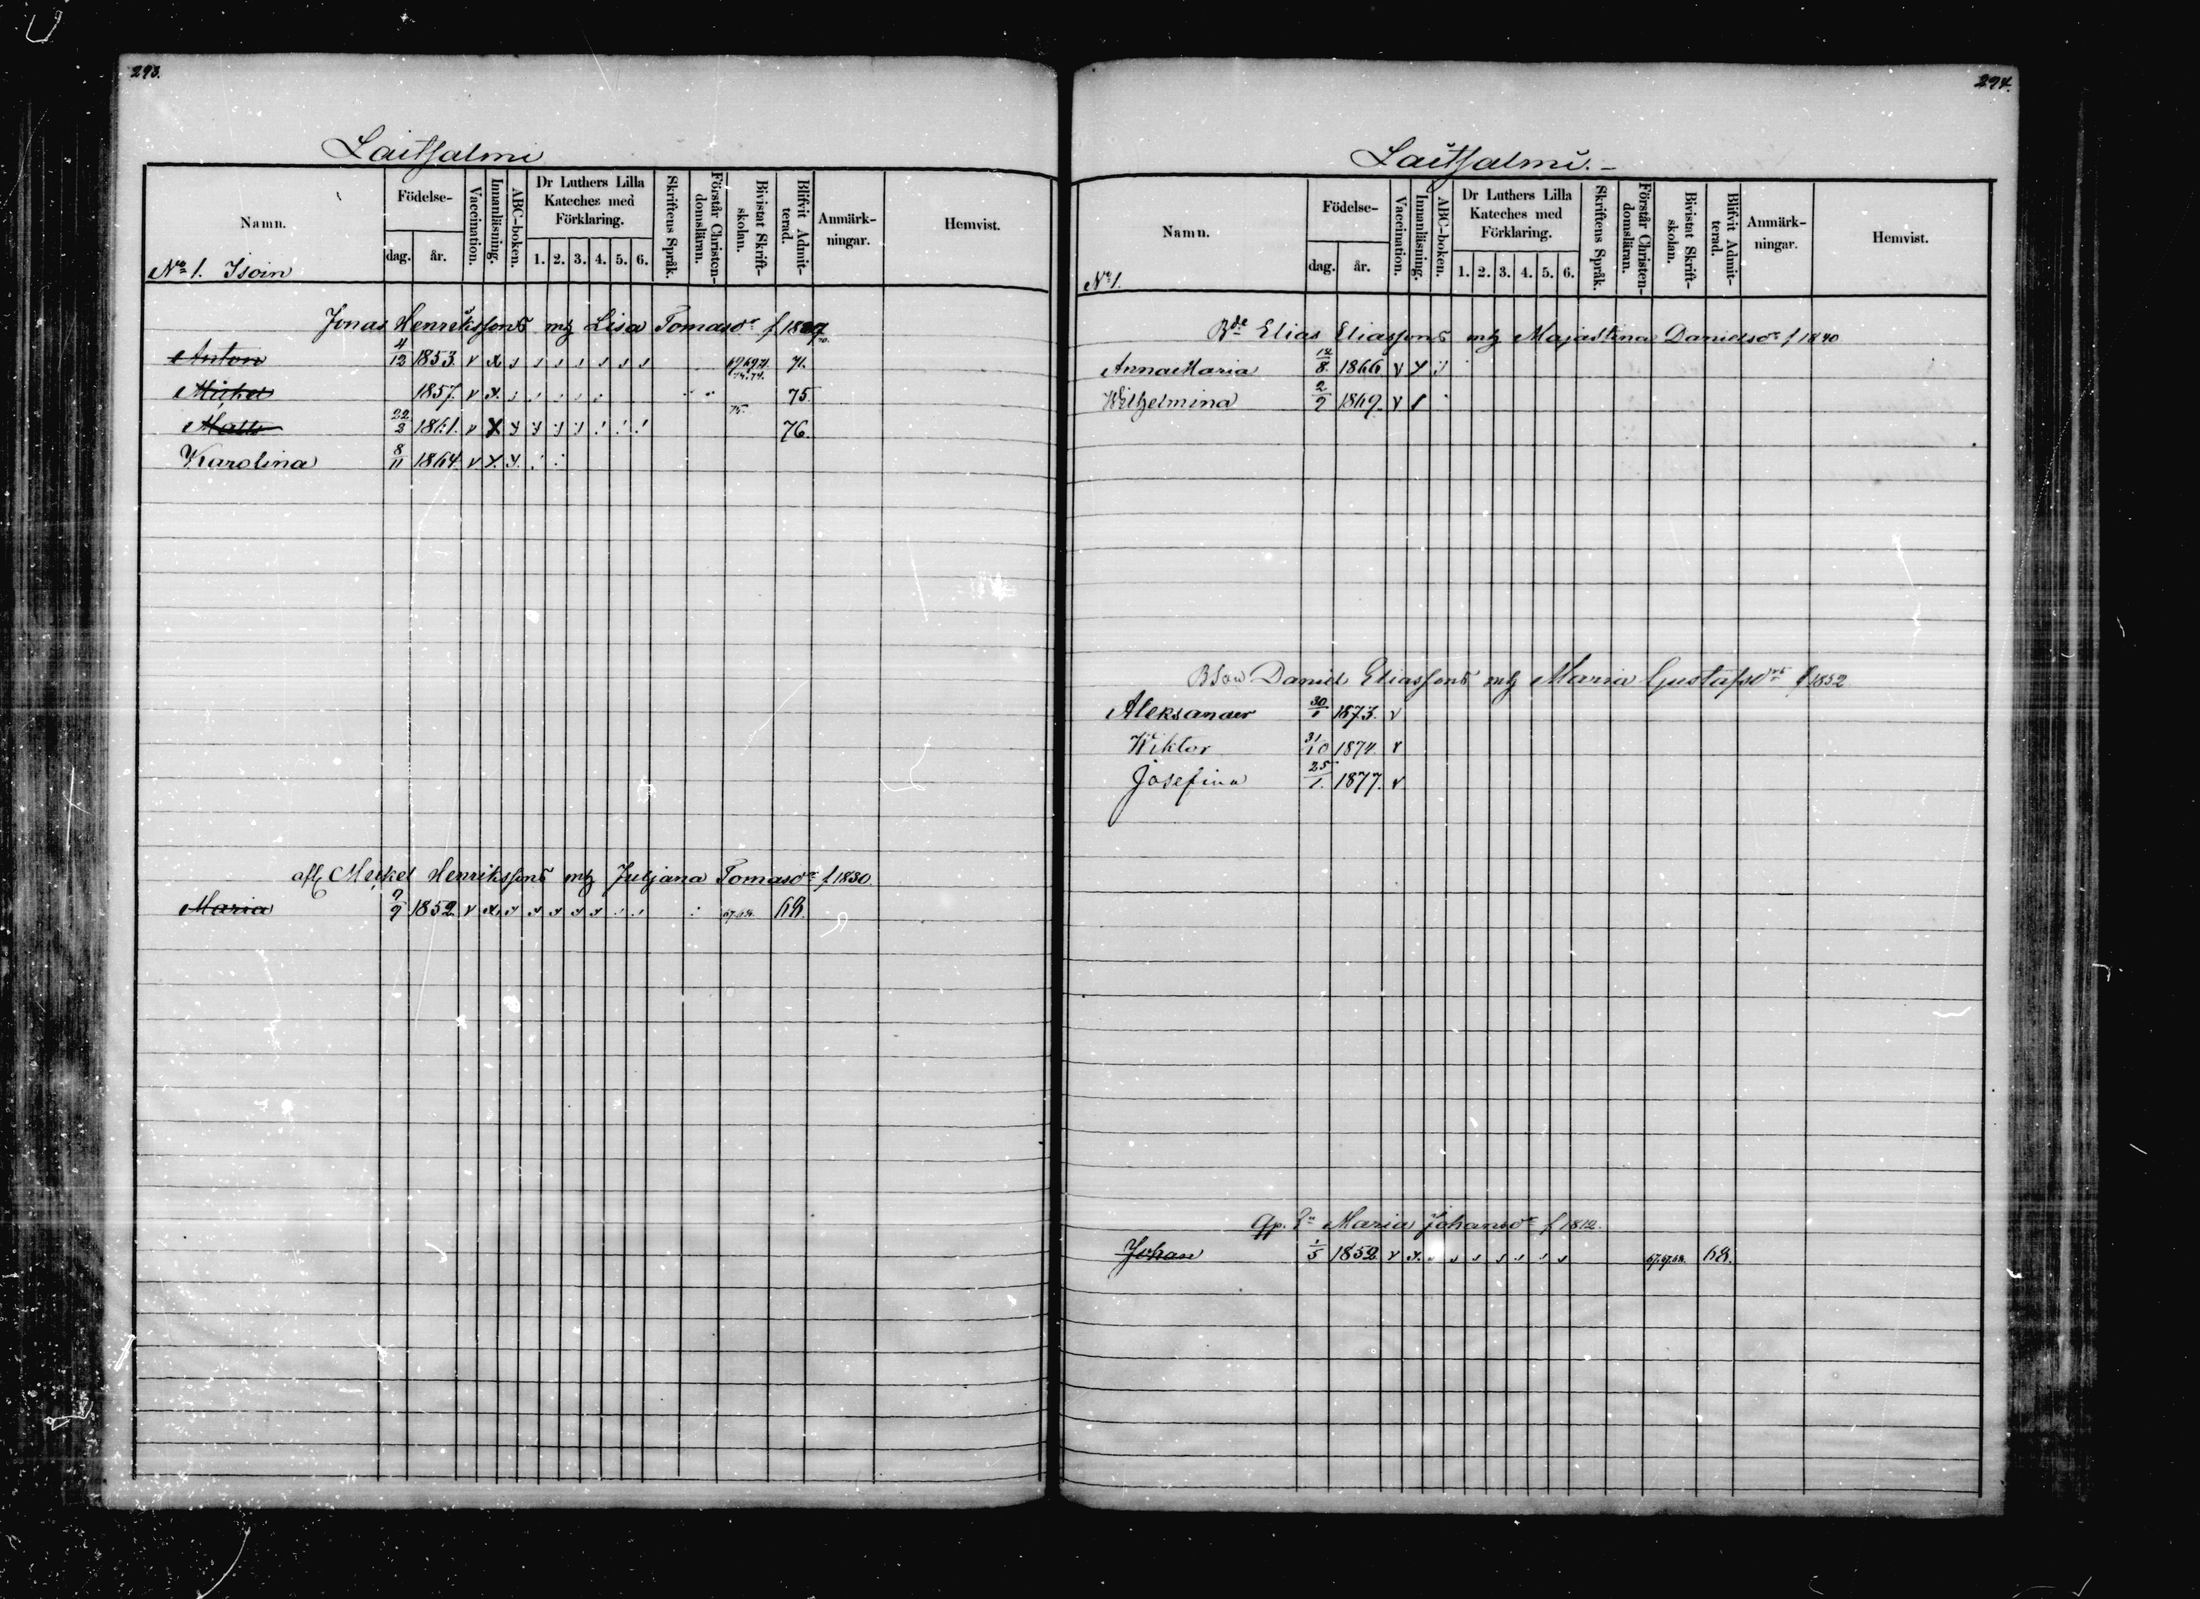 293.
Laitsalmi
Namn. Födelse- dag. år. Vaccination. Innanläsning. ABC-boken. Dr Luthers Lilla Kateches med Förklaring. 1. 2. 3. 4. 5. 6. Skriftens Språk. Förstår Christendomsläran. Bivistat Skriftskolan. Blifvit Admitterad. Anmärkningar. Hemvist.
No 1. Isoin
Jonas Henrikssons mtz Lisa Tomasdr f
Anton 4/12 1853. v x 71.
Mickel 1857. v x. 75.
Matts 22/2 1861. v x 76.
Karolina 8/11 1864. v x x.
afl. Meikel Henrikssons mtz Juljana Tomasdr f 1830.
Maria 1852 v x 67.68. 68.
294.
Laitsalmi.
Namn. Födelse- dag. år. Vaccination. Innanläsning. ABC-boken. Dr Luthers Lilla Kateches med Förklaring. 1. 2. 3. 4. 5. 6. Skriftens Språk. Förstår Christendomsläran. Bivistat Skriftskolan. Blifvit Admitterad. Anmärkningar. Hemvist.
No 1.
Bde Elias Eliassons mtz Majastina Danielsdr f 1840
Anna Maria 8. 1866 v x
Wilhelmina 1869. v
Daniel Eliassons mtz Maria Gustafsdr f 1852
Aleksander 30/1 1873. v
Wiktor 31/10 1874. v
Josefina 25/1. 1877. v
Maria Johansdr f 1812.
Johan 1/5 1852 v x. 67.67.68. 68.